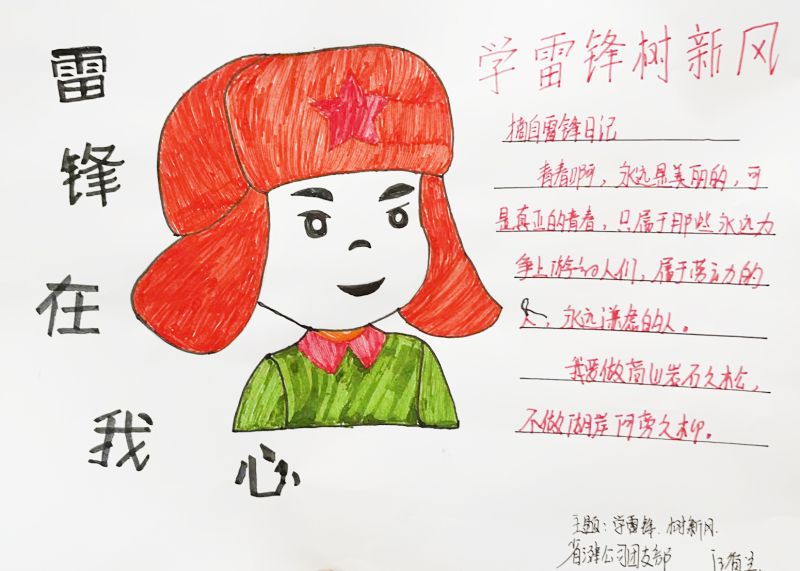 雷
锋
在
我
心
学雷锋树新风
摘自雷锋日记
青春啊,永远是美丽的,可
是真正的青春,只属于那些永远力
争上游的人们,属于劳动的
人,永远谦虚的人。
我要做高山岩石之松,
不做湖岸河旁之柳。
主题:学雷锋、树新风
公司团支部